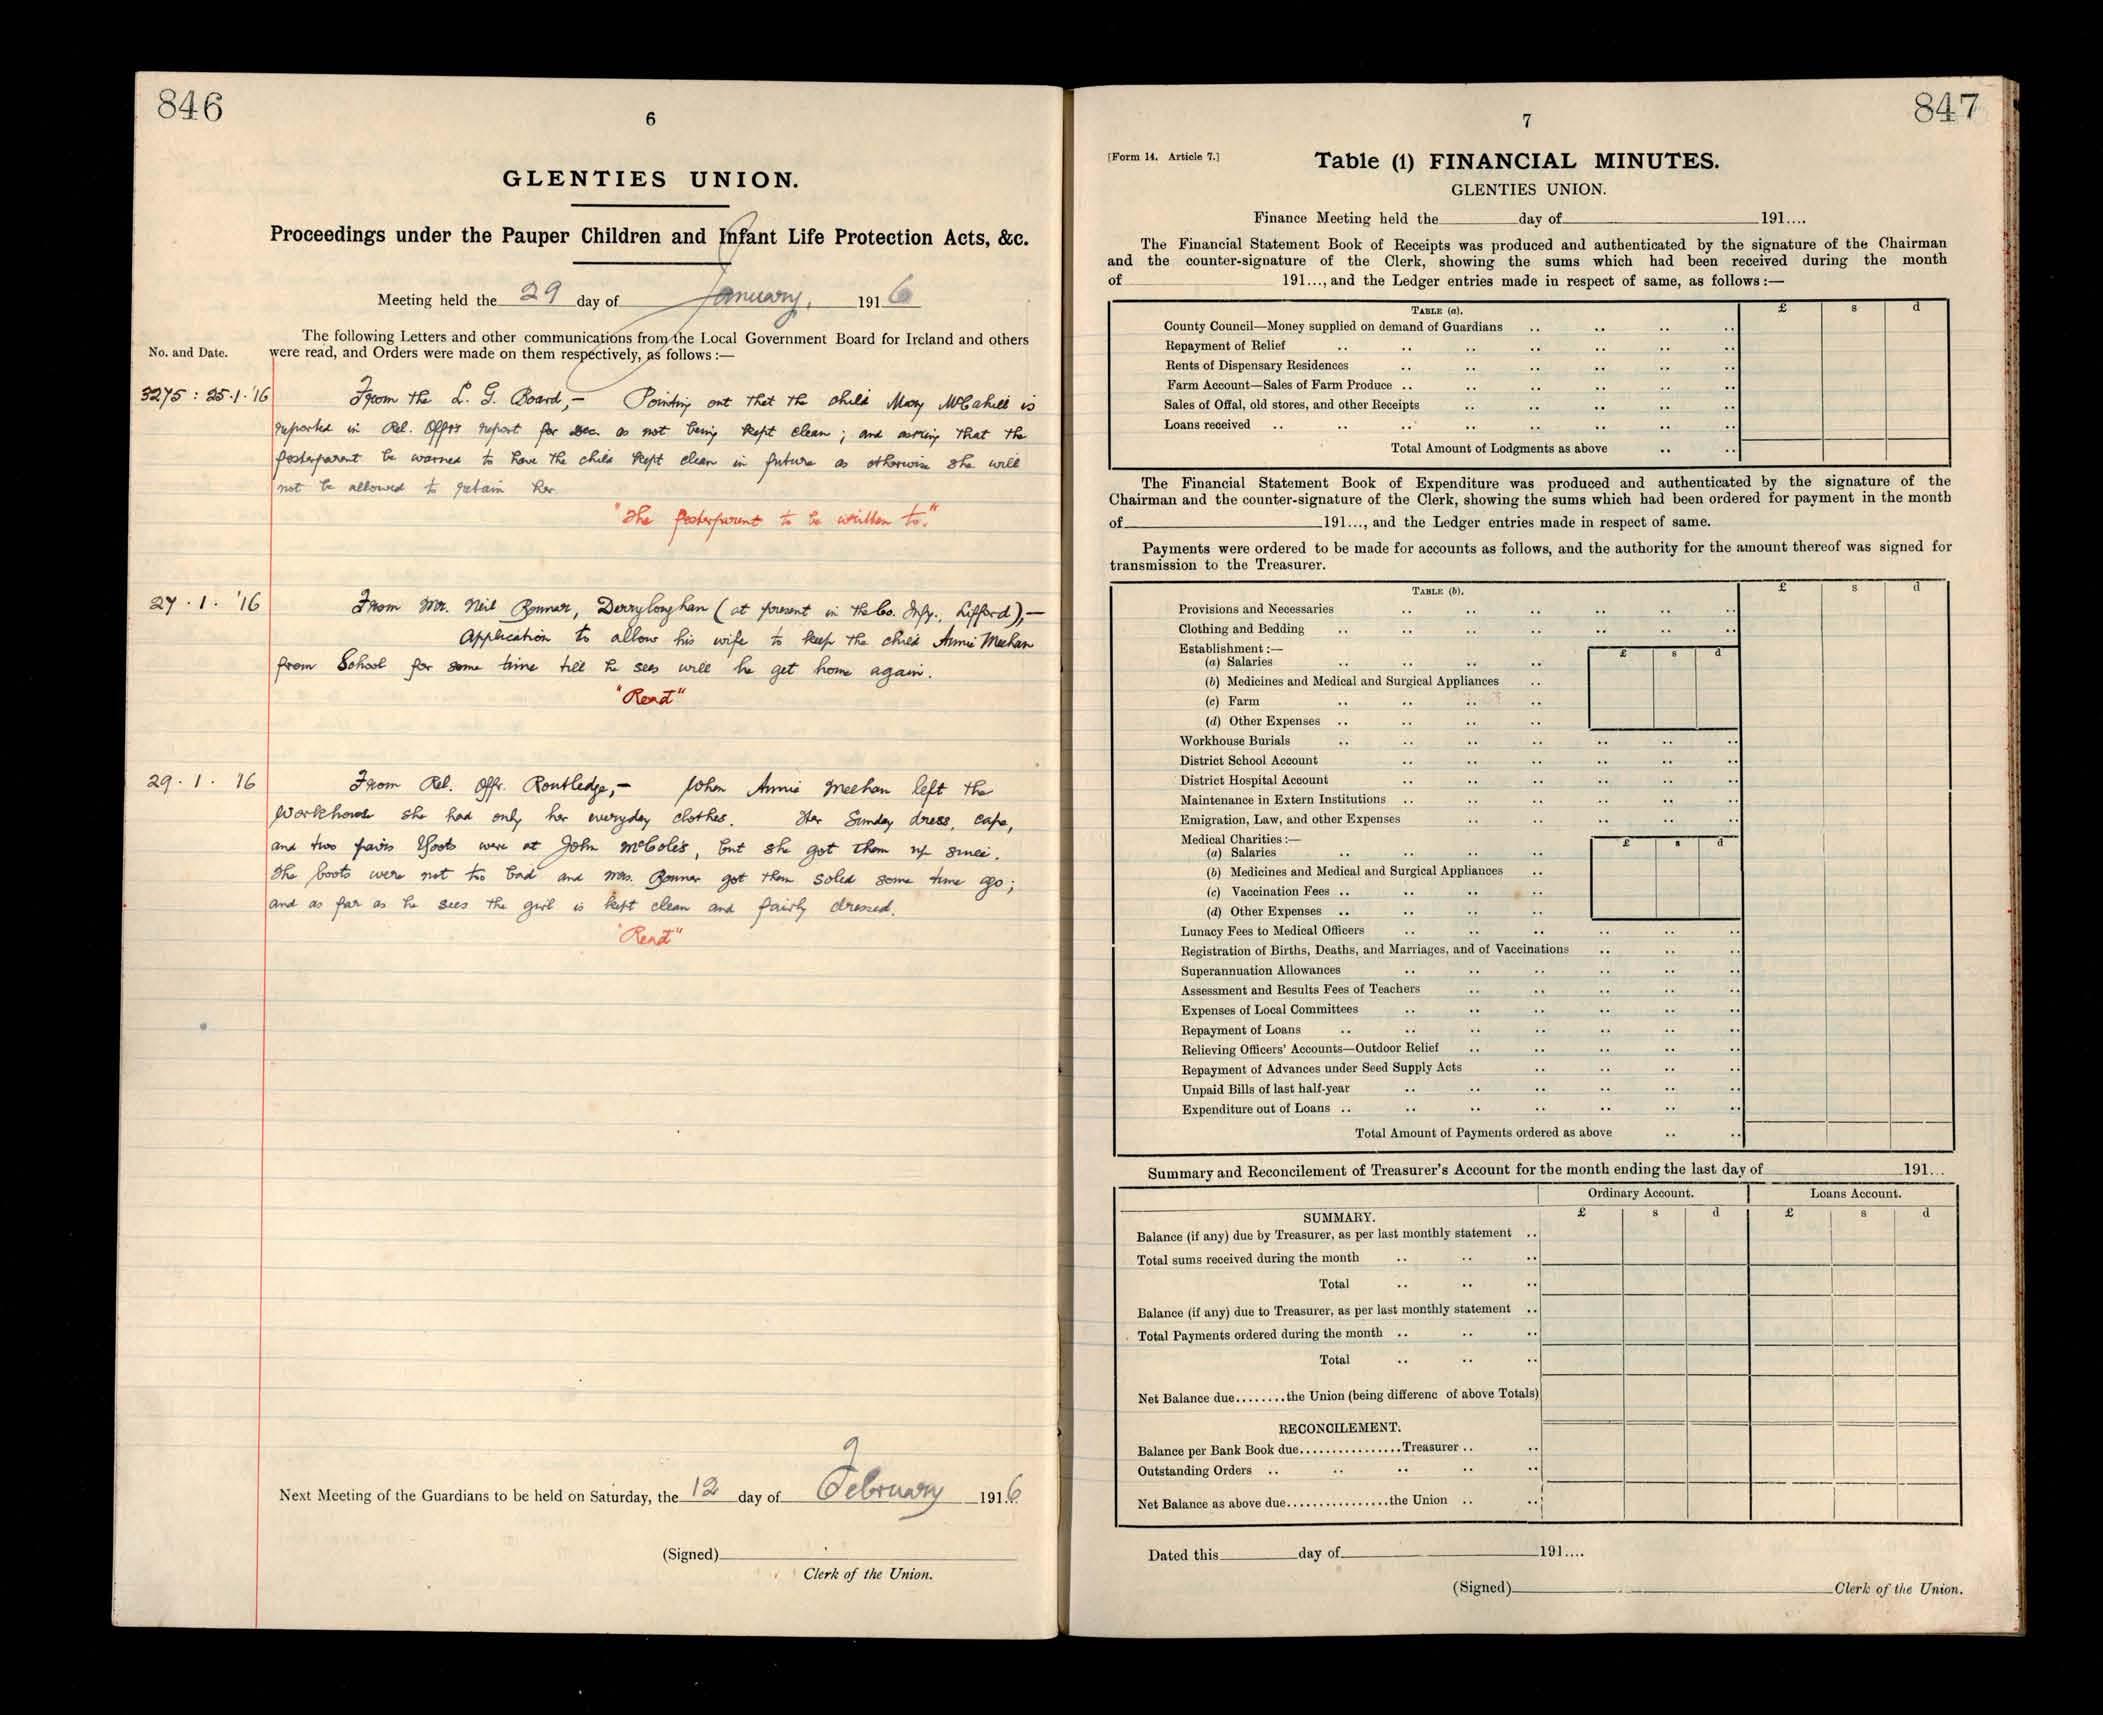 846
6
GLENTIES UNION.
Proceedings under the Pauper Children and Infant Life Protection Acts, &c.
Meeting held the 29 day of January, 1916
The following Letters and other communications from the Local Government Board for Ireland and others
No. and Date. were read, and Orders were made on them respectively, as follows :—
3275 : 25.1.'16 From the L. G. Board,— Pointing out that the child Mary McCahill is
reported in Rel. Offr's report for Dec. as not being kept clean ; and asking that the
fosterparent be warned to have the child kept clean in future as otherwise she will
not be allowed to retain her.
"The fosterparent to be written to."
27 . 1 . '16 From Mr. Neil Bonnar, Derryloughan (at present in the Co. Infy., Lifford),—
Application to allow his wife to keep the child Annie Meehan
from School for some time till he sees will he get home again.
"Read"
29 . 1 . 16 From Rel. Offr. Routledge,— When Annie Meehan left the
Workhouse she had only her everyday clothes. Her Sunday dress, cape,
and two pairs Boots were at John McCole's, but she got them up since.
The boots were not too bad and Mrs. Bonnar got them soled some time ago ;
and as far as he sees the girl is kept clean and fairly dressed.
"Read"
Next Meeting of the Guardians to be held on Saturday, the 12 day of February 191.6
(Signed)
Clerk of the Union.
847
7
[Form 14. Article 7.] Table (1) FINANCIAL MINUTES.
GLENTIES UNION.
Finance Meeting held the day of 191....
The Financial Statement Book of Receipts was produced and authenticated by the signature of the Chairman
and the counter-signature of the Clerk, showing the sums which had been received during the month
of 191..., and the Ledger entries made in respect of same, as follows :—
TABLE (a). £ s d
County Council—Money supplied on demand of Guardians
Repayment of Relief
Rents of Dispensary Residences
Farm Account—Sales of Farm Produce
Sales of Offal, old stores, and other Receipts
Loans received
Total Amount of Lodgments as above
The Financial Statement Book of Expenditure was produced and authenticated by the signature of the
Chairman and the counter-signature of the Clerk, showing the sums which had been ordered for payment in the month
of 191..., and the Ledger entries made in respect of same.
Payments were ordered to be made for accounts as follows, and the authority for the amount thereof was signed for
transmission to the Treasurer.
TABLE (b). £ s d
Provisions and Necessaries
Clothing and Bedding
Establishment :— £ s d
(a) Salaries
(b) Medicines and Medical and Surgical Appliances
(c) Farm
(d) Other Expenses
Workhouse Burials
District School Account
District Hospital Account
Maintenance in Extern Institutions
Emigration, Law, and other Expenses
Medical Charities :— £ s d
(a) Salaries
(b) Medicines and Medical and Surgical Appliances
(c) Vaccination Fees
(d) Other Expenses
Lunacy Fees to Medical Officers
Registration of Births, Deaths, and Marriages, and of Vaccinations
Superannuation Allowances
Assessment and Results Fees of Teachers
Expenses of Local Committees
Repayment of Loans
Relieving Officers' Accounts—Outdoor Relief
Repayment of Advances under Seed Supply Acts
Unpaid Bills of last half-year
Expenditure out of Loans
Total Amount of Payments ordered as above
Summary and Reconcilement of Treasurer's Account for the month ending the last day of 191...
Ordinary Account. Loans Account.
SUMMARY. £ s d £ s d
Balance (if any) due by Treasurer, as per last monthly statement
Total sums received during the month
Total
Balance (if any) due to Treasurer, as per last monthly statement
Total Payments ordered during the month
Total
Net Balance due........the Union (being differenc of above Totals)
RECONCILEMENT.
Balance per Bank Book due................Treasurer
Outstanding Orders
Net Balance as above due................the Union
Dated this day of 191....
(Signed) Clerk of the Union.